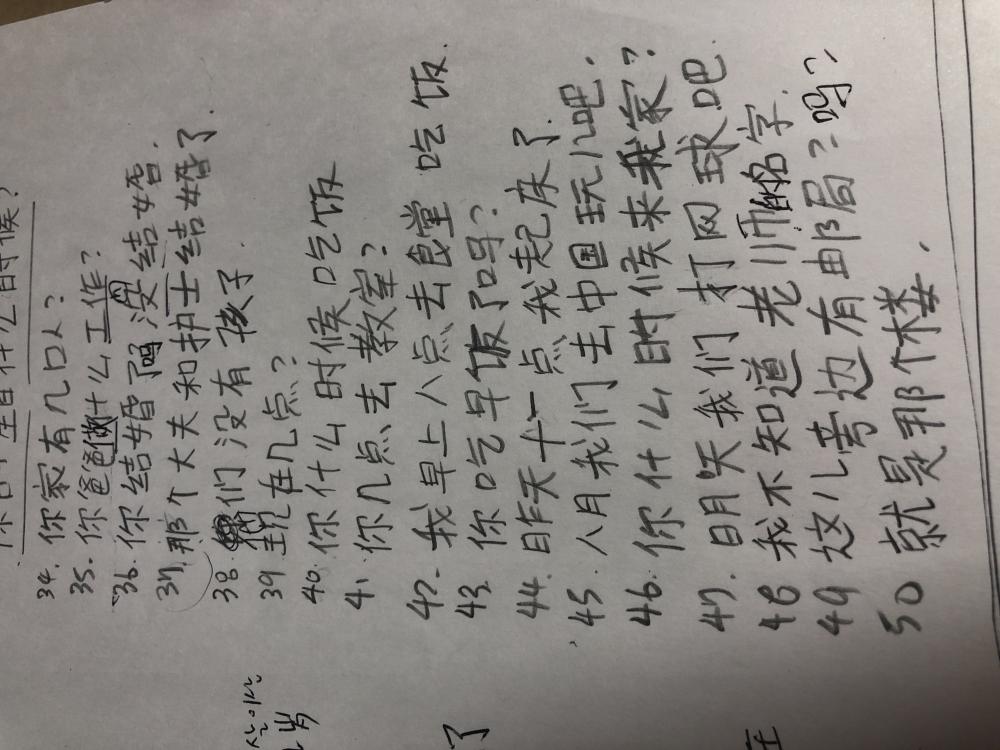 34. 你家有几口人?
35. 你爸爸做什么工作?
36. 你结婚了吗 没结婚.
37. 那个大夫和护士结婚了.
38 他们没有孩子.
39 现在几点?
40. 你什么时候吃饭
41. 你几点去教室?
42. 我早上八点去食堂吃饭.
43. 你吃早饭了吗?
44. 昨天十一点我起床了.
45. 八月我们去中国玩儿吧.
46. 你什么时候来我家?
47. 明天我们打网球吧.
48 我不知道老师的名字.
49 这儿旁边有邮局?吗?
50 就是那个楼.
了